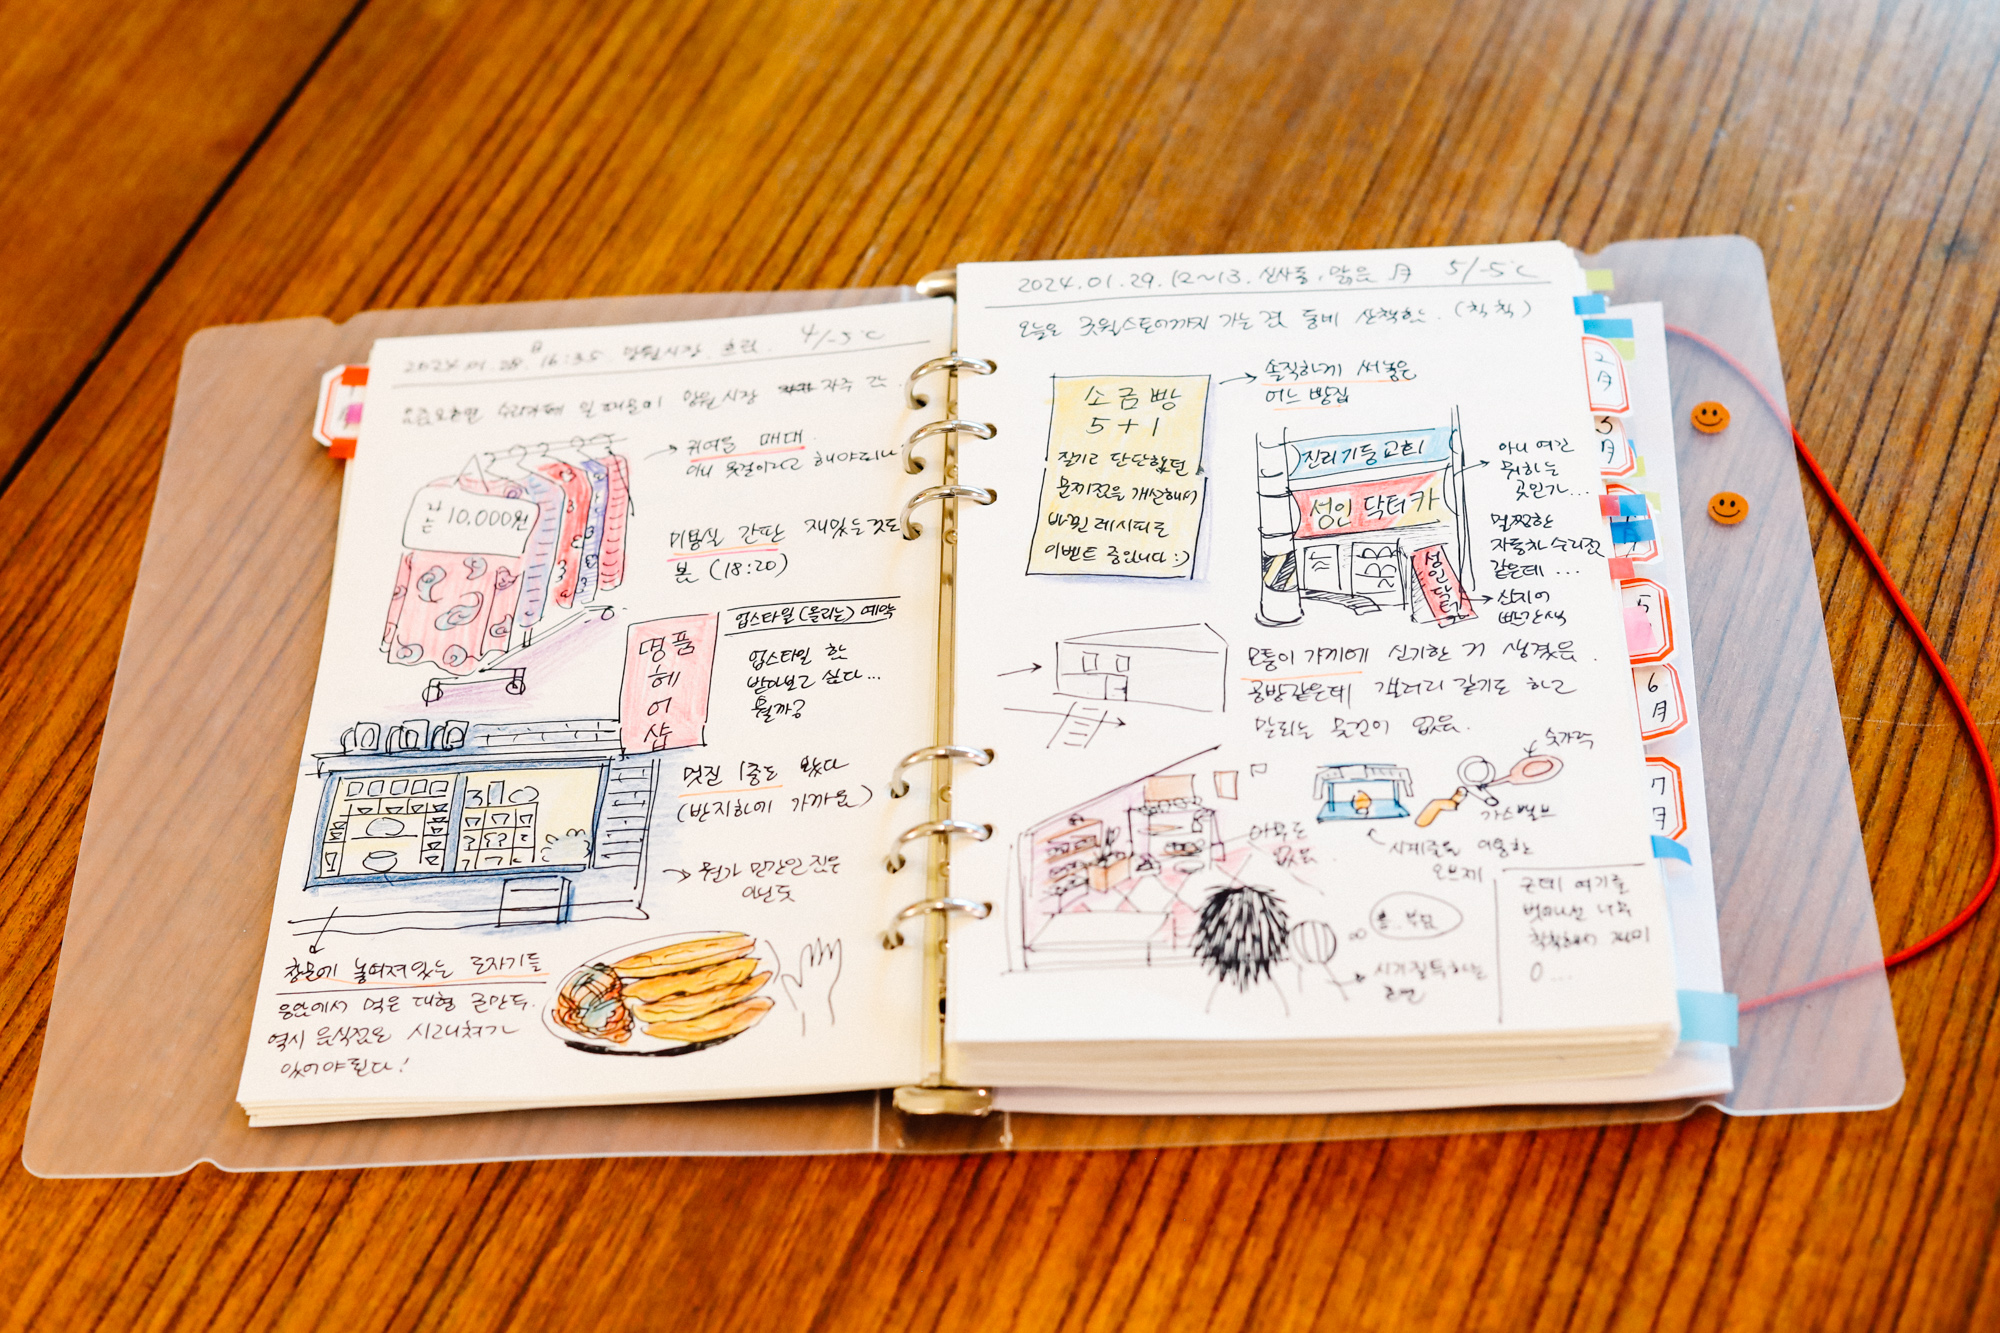 2024.01.28. 日 16:35. 망원시장. 흐림. 4/-5℃
망원시장 자주 감.
→ 귀여운 매대.
아니 옷걸이라고 해야되나
각 10,000원
미용실 간판 재밌는것도
봄 (18:20)
명품
헤
어
샵
업스타일(올리는) 예약
업스타일 한
받아보고 싶다...
뭘까궁
멋진 1층도 봤다
(반지하에 가까움)
→ 뭔가 민간인 집은
아닌듯
창문에 놓여져있는 도자기들
응암에서 먹은 대형 군만두.
역시 음식점은 시그니처가
있어야된다!
2024.01.29. 12~13. 신사동. 맑음 月 5/-5℃
오늘은 굿윌스토어까지 가는 겸 동네 산책함. (칙칙)
소금빵
5+1
질기고 단단했던
문제점을 개선해서
바뀐 레시피로
이벤트 중입니다 :)
→ 솔직하게 써놓은
어느 빵집
진리기둥교회
성인 닥터카
성인닥터
→ 아니 여긴
뭐하는
곳인가...
멀쩡한
자동차 수리점
같은데 ...
→ 심지어
빨간색
모퉁이 가게에 신기한 거 생겼음.
공방같은데 갤러리 같기도 하고
말리는 물건이 없음.
아무도
없음.
숟가락
가스밸브
시계줄을 이용한
오브제
흠.. 부럽
근데 여기를
벗어나선 너무
칙칙해서 재미
0...
2月
3月
5
6月
7月